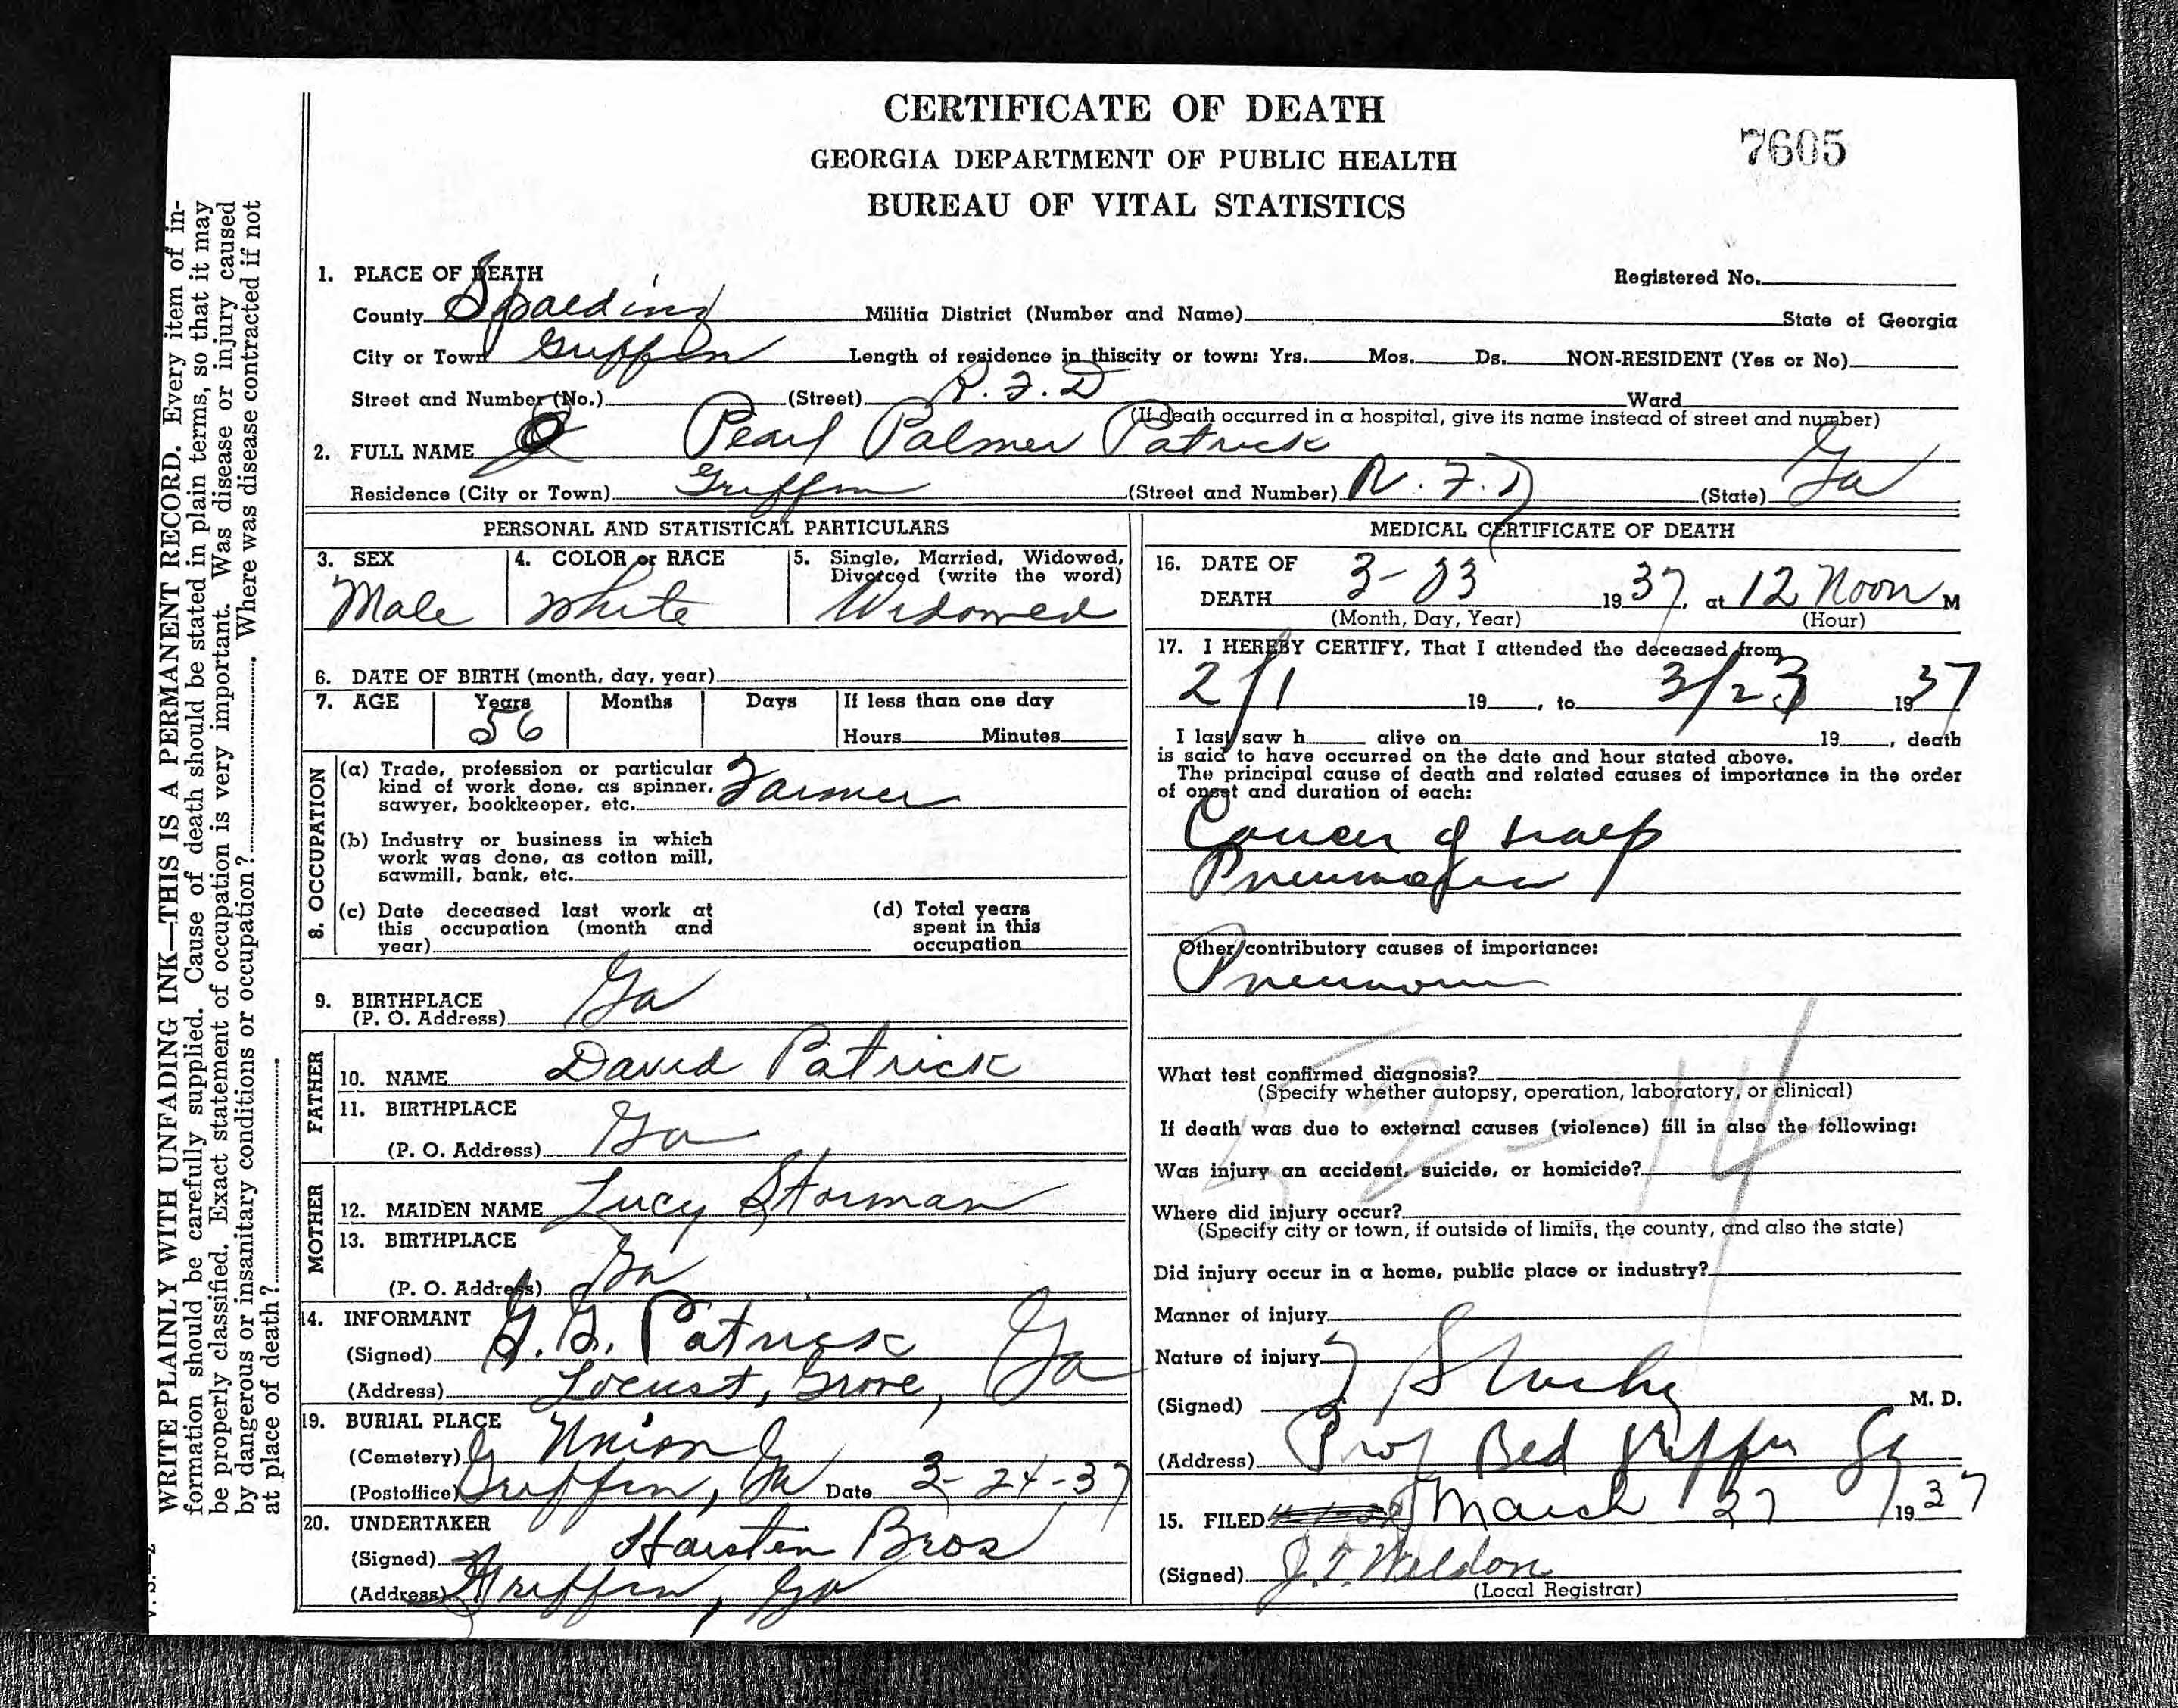 CERTIFICATE OF DEATH
GEORGIA DEPARTMENT OF PUBLIC HEALTH
7605
BUREAU OF VITAL STATISTICS
1. PLACE OF DEATH
Registered No.
County Spalding Militia District (Number and Name) State of Georgia
City or Town Griffin Length of residence in thiscity or town: Yrs. Mos. Ds. NON-RESIDENT (Yes or No)
Street and Number (No.) (Street) R.F.D Ward
(If death occurred in a hospital, give its name instead of street and number)
2. FULL NAME Pearl Palmer Patrick
Residence (City or Town) Griffin (Street and Number) R.F.D (State) Ga
PERSONAL AND STATISTICAL PARTICULARS
3. SEX 4. COLOR or RACE 5. Single, Married, Widowed,
Divorced (write the word)
Male White Widowed
6. DATE OF BIRTH (month, day, year)
7. AGE Years Months Days If less than one day
56 Hours Minutes
8. OCCUPATION
(a) Trade, profession or particular
kind of work done, as spinner,
sawyer, bookkeeper, etc. Farmer
(b) Industry or business in which
work was done, as cotton mill,
sawmill, bank, etc.
(c) Date deceased last work at
this occupation (month and
year)
(d) Total years
spent in this
occupation
9. BIRTHPLACE
(P. O. Address) Ga
FATHER
10. NAME David Patrick
11. BIRTHPLACE
(P. O. Address) Ga
MOTHER
12. MAIDEN NAME Lucy Storman
13. BIRTHPLACE
(P. O. Address) Ga
14. INFORMANT
(Signed) G. G. Patrick
(Address) Locust, Grove, Ga
19. BURIAL PLACE
(Cemetery) Union
(Postoffice) Griffin, Ga Date 3-24-37
20. UNDERTAKER
(Signed) Haisten Bros
(Address) Griffin, Ga
MEDICAL CERTIFICATE OF DEATH
16. DATE OF
DEATH 3-23 1937, at 12 Noon M
(Month, Day, Year) (Hour)
17. I HEREBY CERTIFY, That I attended the deceased from
2/1 19 , to 3/23 1937
I last saw h alive on 19 , death
is said to have occurred on the date and hour stated above.
The principal cause of death and related causes of importance in the order
of onset and duration of each:
Cancer of
Other contributory causes of importance:
What test confirmed diagnosis?
(Specify whether autopsy, operation, laboratory, or clinical)
If death was due to external causes (violence) fill in also the following:
Was injury an accident, suicide, or homicide?
Where did injury occur?
(Specify city or town, if outside of limits, the county, and also the state)
Did injury occur in a home, public place or industry?
Manner of injury
Nature of injury
(Signed) M. D.
(Address) Prof Bld Griffin Ga
15. FILED March 27 1937
(Signed) J. T. Weldon
(Local Registrar)
WRITE PLAINLY WITH UNFADING INK—THIS IS A PERMANENT RECORD. Every item of in-
formation should be carefully supplied. Cause of death should be stated in plain terms, so that it may
be properly classified. Exact statement of occupation is very important. Was disease or injury caused
by dangerous or insanitary conditions or occupation? Where was disease contracted if not
at place of death?